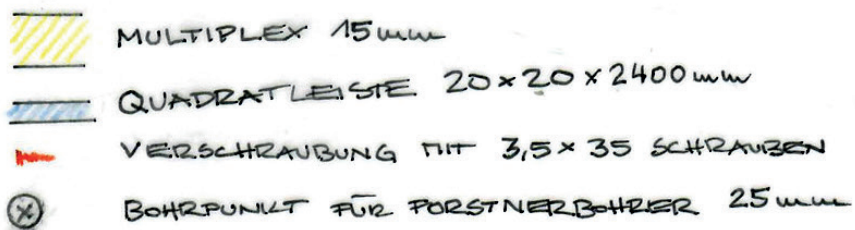 MULTIPLEX 15mm
QUADRATLEISTE 20×20×2400mm
VERSCHRAUBUNG MIT 3,5×35 SCHRAUBEN
BOHRPUNKT FÜR FORSTNERBOHRER 25mm